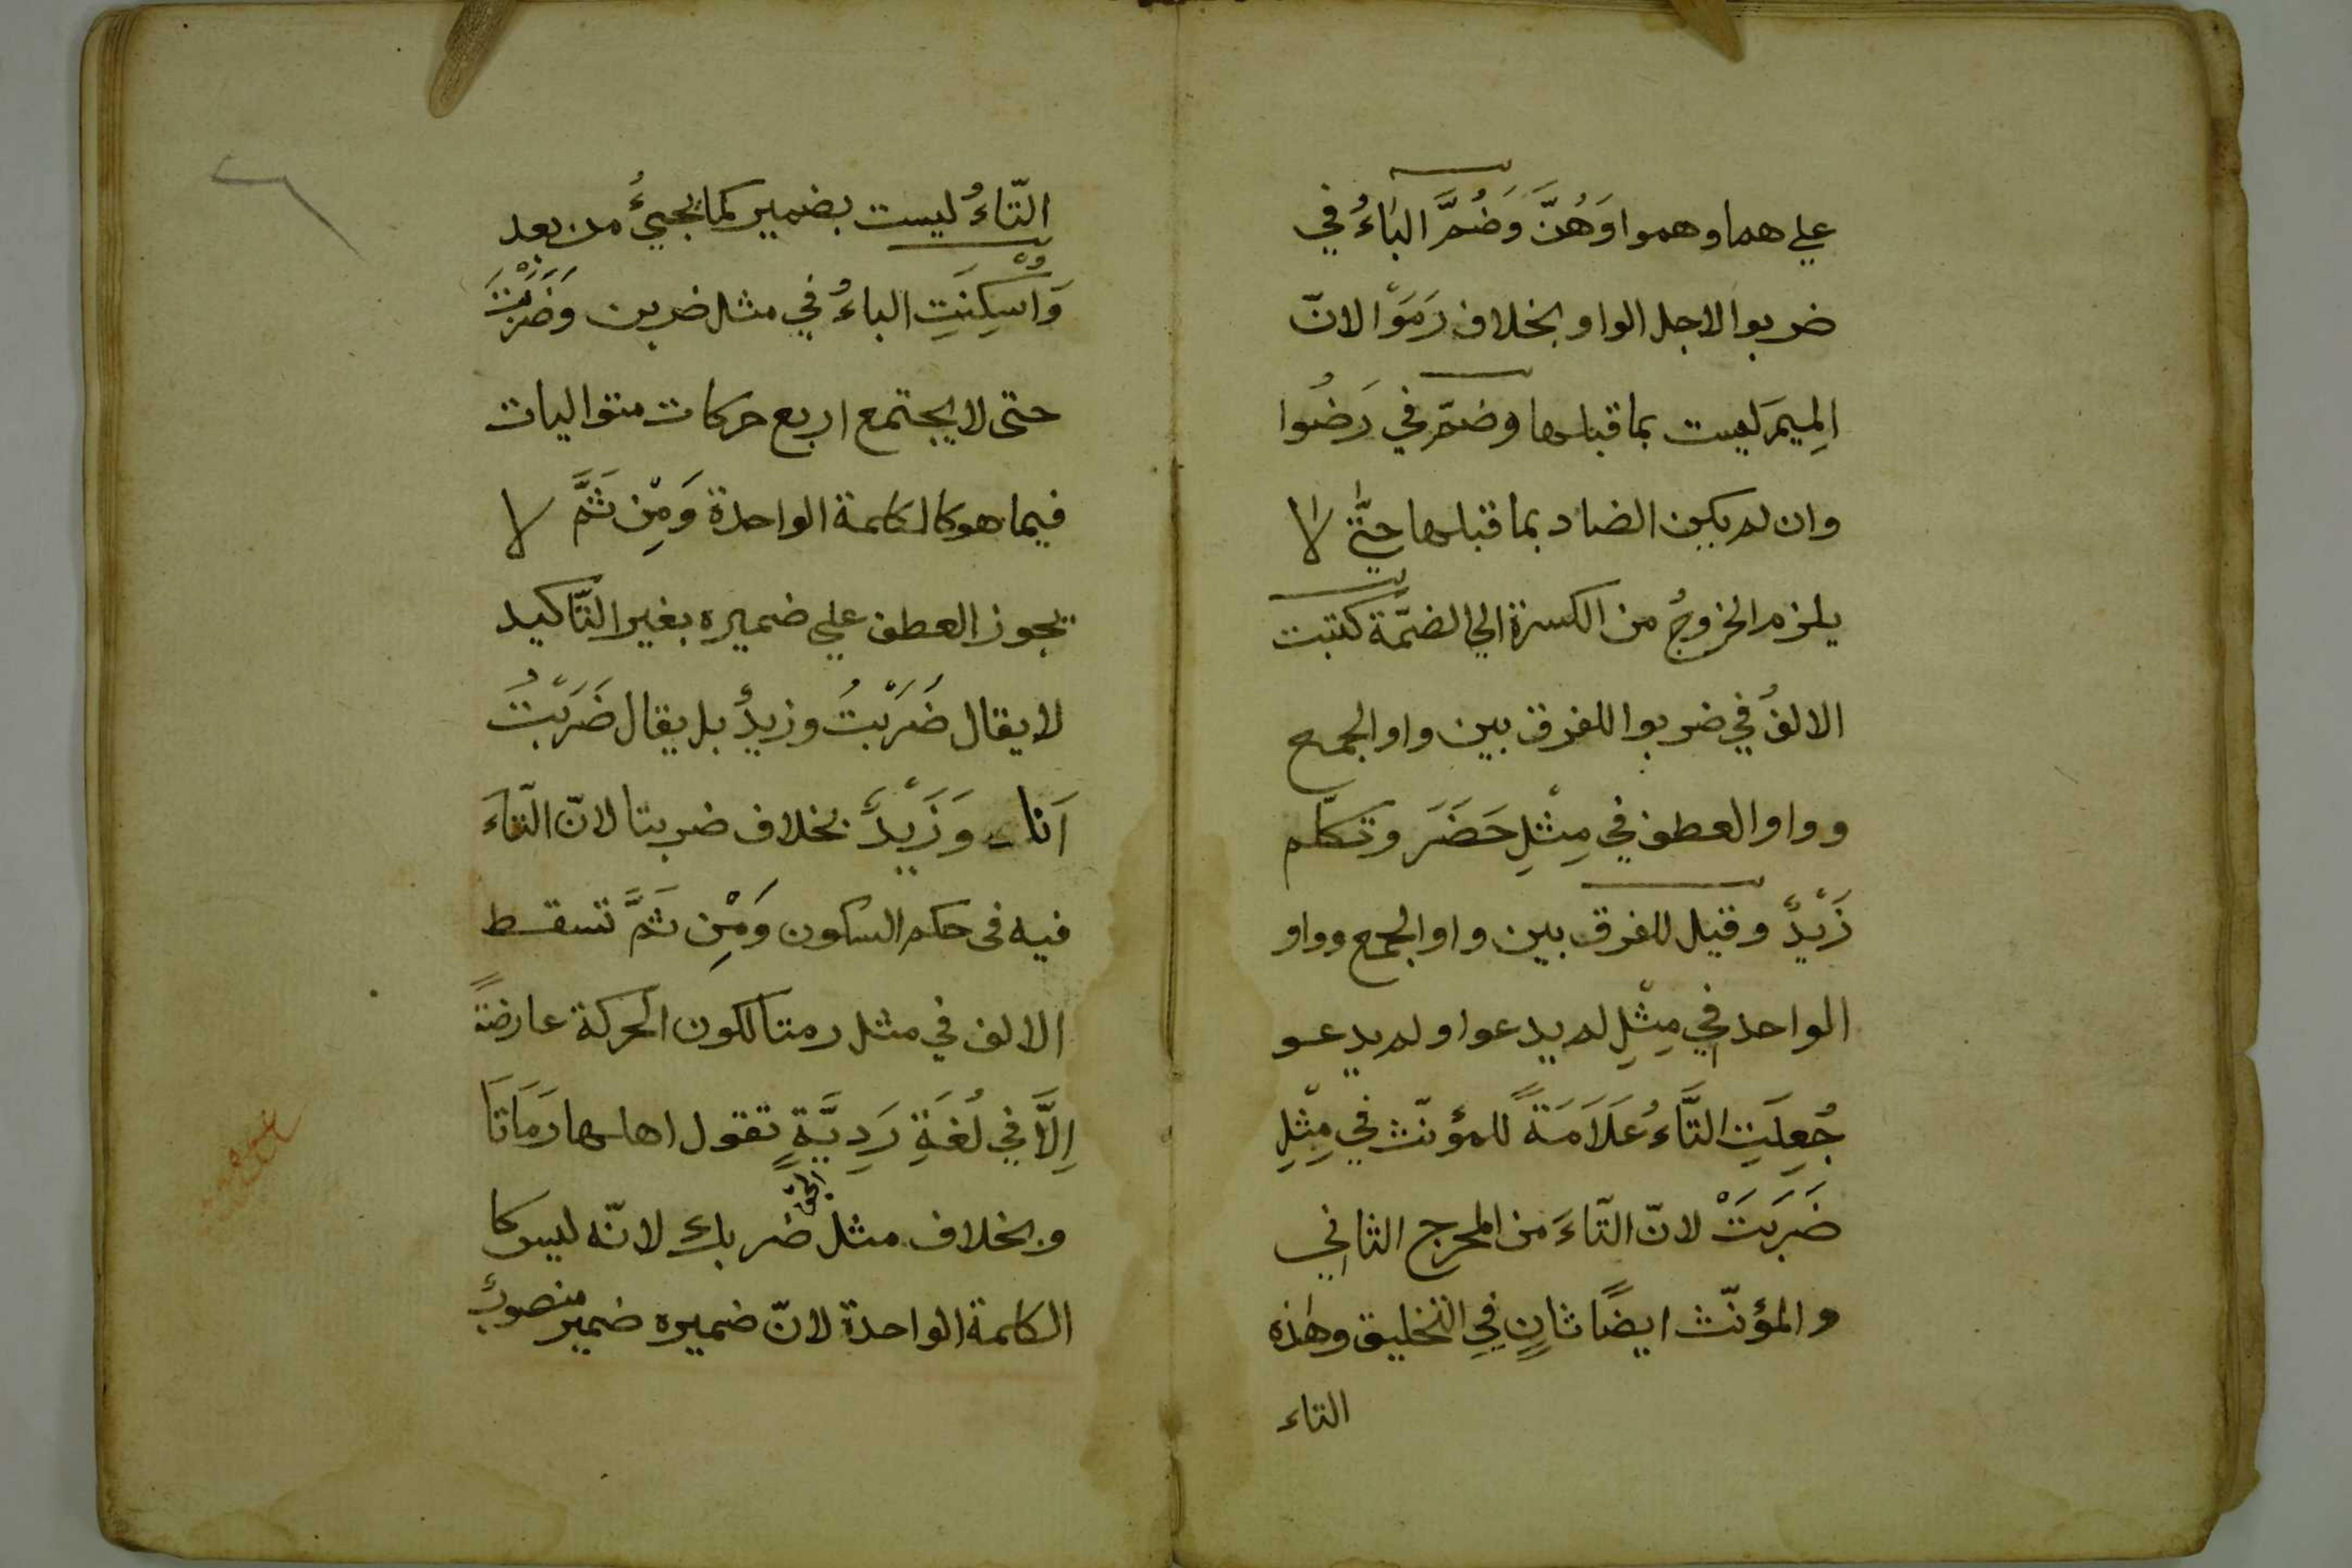 علي هما وهموا وَهُنَّ وَضُمَّ البَاءُ في
ضربوا لاجل الواو بخلاف رَمَوْا لانّ
المِيمَ ليست بما قبلها وضمّ في رَضُوا
وان لم يكن الضاد بما قبلها حتّٰي لا
يلزم الخروجُ من الكسرة الي الضمّة كتبت
الالفُ في ضربوا للفرق بين واو الجمع
وواو العطف في مِثْلِ حَضَرَ وتكلّم
زَيْدٌ وقيل للفرق بين واو الجمع وواو
الواحد في مِثْلِ لم يدعوا ولم يدعو
جُعِلَتِ التَّاءُ عَلَامَةً للمؤنّث في مِثْلِ
ضَرَبَتْ لانّ التّاءَ من المخرج الثاني
والمؤنّث ايضًا ثانٍ فِي التخليق وهٰذه
التاء
التّاءُ ليست بضمير كما يجيءُ من بعد
وَاُسْكِنَتِ الباءُ في مثل ضربن وَضَرَبْتَ
حتى لا يجتمع اربع حركات متواليات
فيما هو كالكلمة الواحدة وَمِنْ ثَمَّ لا
يجوز العطف علي ضميره بغير التّاكيد
لا يقال ضَرَبْتُ وزيدٌ بل يقال ضَرَبْتُ
اَنا وَزَيْدٌ بخلاف ضربتا لانّ التّاءَ
فيه فى حكم السكون وَمِنْ ثَمَّ تسقط
الالف في مثل رمتا لكون الحركة عارضةً
اِلَّا في لُغَةٍ رَدِيَّةٍ تقول اهلها رَمَاتَا
وبخلاف مثل ضربك لانّه ليس كا
الكلمة الواحدة لانّ ضميره ضمير منصوبٌ